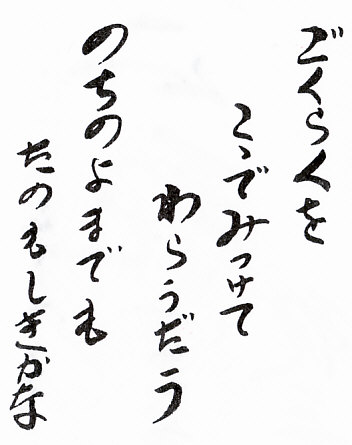 ごくらくを
こゝでみつけて
わらうだう
のちのよまでも
たのもしきかな